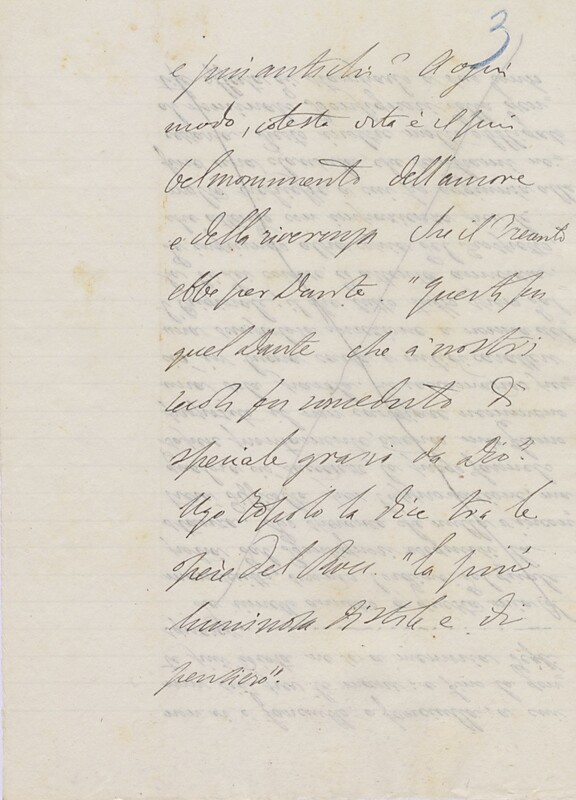 3
e più antichi? A ogni
modo, cotesta vita è il più
bel monumento dell'amore
e della riverenza che il
ebbe per Dante. "Questi fu
quel Dante che a' nostri
fu conceduto di
speciale grazia da Dio".
Ugo Foscolo la dice tra le
opere del Bocc. "la più
luminosa di stile e di
pensiero".